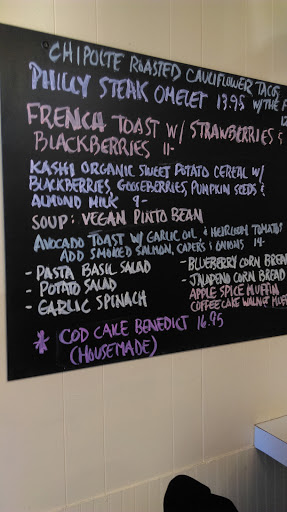 CHIPOLTE ROASTED CAULIFLOWER TACOS
PHILLY STEAK OMELET 13.95 W/THE F
12
FRENCH TOAST W/ STRAWBERRIES &
BLACKBERRIES 11-
KASHI ORGANIC SWEET POTATO CEREAL W/
BLACKBERRIES, GOOSEBERRIES, PUMPKIN SEEDS &
ALMOND MILK 9-
SOUP: VEGAN PINTO BEAN
AVOCADO TOAST W/ GARLIC OIL & HEIRLOOM TOMATOS
ADD SMOKED SALMON, CAPERS & ONIONS 14-
- PASTA BASIL SALAD
- POTATO SALAD
- GARLIC SPINACH
- BLUEBERRY CORN BREAD
- JALAPENO CORN BREAD
APPLE SPICE MUFFIN
COFFEE CAKE WALNUT MUFF
* COD CAKE BENEDICT 16.95
(HOUSEMADE)